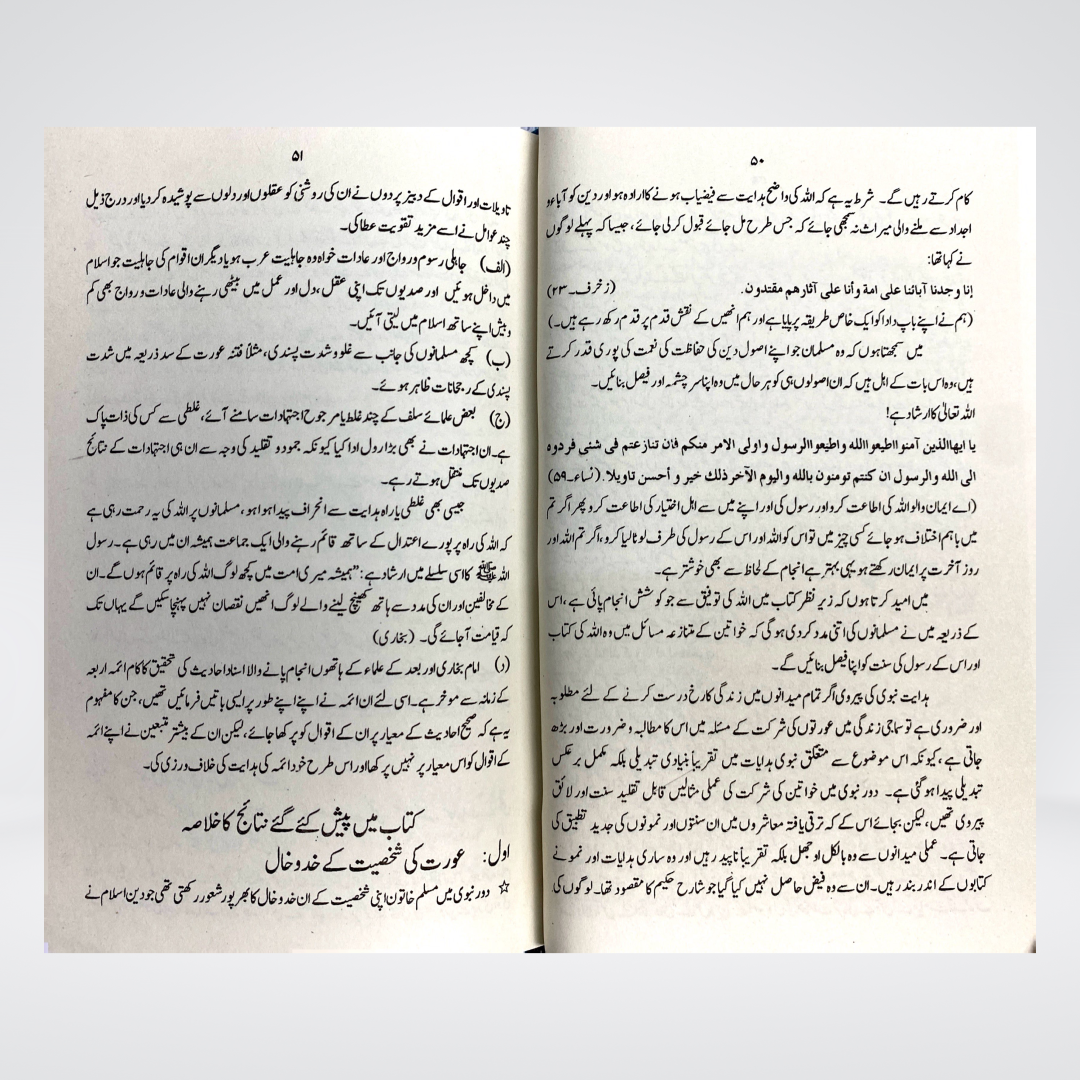 ۵۰
کام کرتے رہیں گے۔ شرط یہ ہے کہ اللہ کی واضح ہدایت سے فیضیاب ہونے کا ارادہ ہو اور دین کو آباء و
اجداد سے ملنے والی میراث نہ سمجھی جائے کہ جس طرح مل جائے قبول کرلی جائے، جیسا کہ پہلے لوگوں
نے کہا تھا:
إنا وجدنا آبائنا على امة وأنا على آثارهم مقتدون. (زخرف۔۲۳)
(ہم نے اپنے باپ دادا کو ایک خاص طریقہ پر پایا ہے اور ہم انھیں کے نقش قدم پر قدم رکھ رہے ہیں۔)
میں سمجھتا ہوں کہ وہ مسلمان جو اپنے اصول دین کی حفاظت کی نعمت کی پوری قدر کرتے
ہیں، وہ اس بات کے اہل ہیں کہ ان اصولوں ہی کو ہر حال میں وہ اپنا سرچشمہ اور فیصل بنائیں۔
اللہ تعالیٰ کا ارشاد ہے!
يا ايهاالذين آمنوا اطيعوا الله واطيعوا الرسول واولى الامر منكم فان تنازعتم فى شئى فردوه
الى الله والرسول ان كنتم تومنون بالله واليوم الآخر ذلك خير و أحسن تاويلا. (نساء۔۵۹)
(اے ایمان والو اللہ کی اطاعت کرو اور رسول کی اور اپنے میں سے اہل اختیار کی اطاعت کرو پھر اگر تم
میں باہم اختلاف ہو جائے کسی چیز میں تو اس کو اللہ اور اس کے رسول کی طرف لوٹا لیا کرو، اگر تم اللہ اور
روز آخرت پر ایمان رکھتے ہو یہی بہتر ہے انجام کے لحاظ سے بھی خوشتر ہے۔
میں امید کرتا ہوں کہ زیر نظر کتاب میں اللہ کی توفیق سے جو کوشش انجام پائی ہے، اس
کے ذریعہ میں نے مسلمانوں کی اتنی مدد کر دی ہوگی کہ خواتین کے متنازعہ مسائل میں وہ اللہ کی کتاب
اور اس کے رسول کی سنت کو اپنا فیصل بنائیں گے۔
ہدایت نبوی کی پیروی اگر تمام میدانوں میں زندگی کا رخ درست کرنے کے لئے مطلوب
اور ضروری ہے تو سماجی زندگی میں عورتوں کی شرکت کے مسئلہ میں اس کا مطالبہ و ضرورت اور بڑھ
جاتی ہے، کیونکہ اس موضوع سے متعلق نبوی ہدایات میں تقریباً بنیادی تبدیلی بلکہ مکمل برعکس
تبدیلی پیدا ہوگئی ہے۔ دور نبوی میں خواتین کی شرکت کی عملی مثالیں قابل تقلید سنت اور لائق
پیروی تھیں، لیکن بجائے اس کے کہ ترقی یافتہ معاشروں میں ان سنتوں اور نمونوں کی جدید تطبیق کی
جاتی ہے۔ عملی میدانوں سے وہ بالکل اوجھل بلکہ تقریباً ناپید رہیں اور وہ ساری ہدایات اور نمونے
کتابوں کے اندر بند رہیں۔ ان سے وہ فیض حاصل نہیں کیا گیا جو شارح حکیم کا مقصود تھا۔ لوگوں کی
۵۱
تاویلات اور اقوال کے دبیز پردوں نے ان کی روشنی کو عقلوں اور دلوں سے پوشیدہ کر دیا اور درج ذیل
چند عوامل نے اسے مزید تقویت عطا کی۔
(الف) جاہلی رسوم و رواج اور عادات خواہ وہ جاہلیت عرب ہو یا دیگر ان اقوام کی جاہلیت جو اسلام
میں داخل ہوئیں اور صدیوں تک اپنی عقل، دل اور عمل میں بیٹھی رہنے والی عادات و رواج بھی کم
و بیش اپنے ساتھ اسلام میں لیتی آئیں۔
(ب) کچھ مسلمانوں کی جانب سے غلو و شدت پسندی، مثلاً فتنہ عورت کے سد ذریعہ میں شدت
پسندی کے رجحانات ظاہر ہوئے۔
(ج) بعض علمائے سلف کے چند غلط یا مرجوح اجتہادات سامنے آئے، غلطی سے کس کی ذات پاک
ہے۔ ان اجتہادات نے بھی بڑا رول ادا کیا کیونکہ جمود و تقلید کی وجہ سے ان ہی اجتہادات کے نتائج
صدیوں تک منتقل ہوتے رہے۔
جیسی بھی غلطی یا راہ ہدایت سے انحراف پیدا ہوا ہو، مسلمانوں پر اللہ کی یہ رحمت رہی ہے
کہ اللہ کی راہ پر پورے اعتدال کے ساتھ قائم رہنے والی ایک جماعت ہمیشہ ان میں رہی ہے۔ رسول
اللہ ﷺ کا اسی سلسلے میں ارشاد ہے: "ہمیشہ میری امت میں کچھ لوگ اللہ کی راہ پر قائم ہوں گے۔ ان
کے مخالفین اور ان کی مدد سے ہاتھ کھینچ لینے والے لوگ انھیں نقصان نہیں پہنچا سکیں گے یہاں تک
کہ قیامت آجائے گی۔ (بخاری)
(د) امام بخاری اور بعد کے علماء کے ہاتھوں انجام پانے والا اسناد احادیث کی تحقیق کا کام ائمہ اربعہ
کے زمانہ سے موخر ہے۔ اسی لئے ان ائمہ نے اپنے اپنے طور پر ایسی باتیں فرمائیں تھیں، جن کا مفہوم
یہ ہے کہ صحیح احادیث کے معیار پر ان کے اقوال کو پرکھا جائے، لیکن ان کے بیشتر متبعین نے اپنے ائمہ
کے اقوال کو اس معیار پر نہیں پرکھا اور اس طرح خود ائمہ کی ہدایت کی خلاف ورزی کی۔
کتاب میں پیش کئے گئے نتائج کا خلاصہ
اول: عورت کی شخصیت کے خدوخال
☆ دور نبوی میں مسلم خاتون اپنی شخصیت کے ان خدوخال کا بھرپور شعور رکھتی تھی جو دین اسلام نے